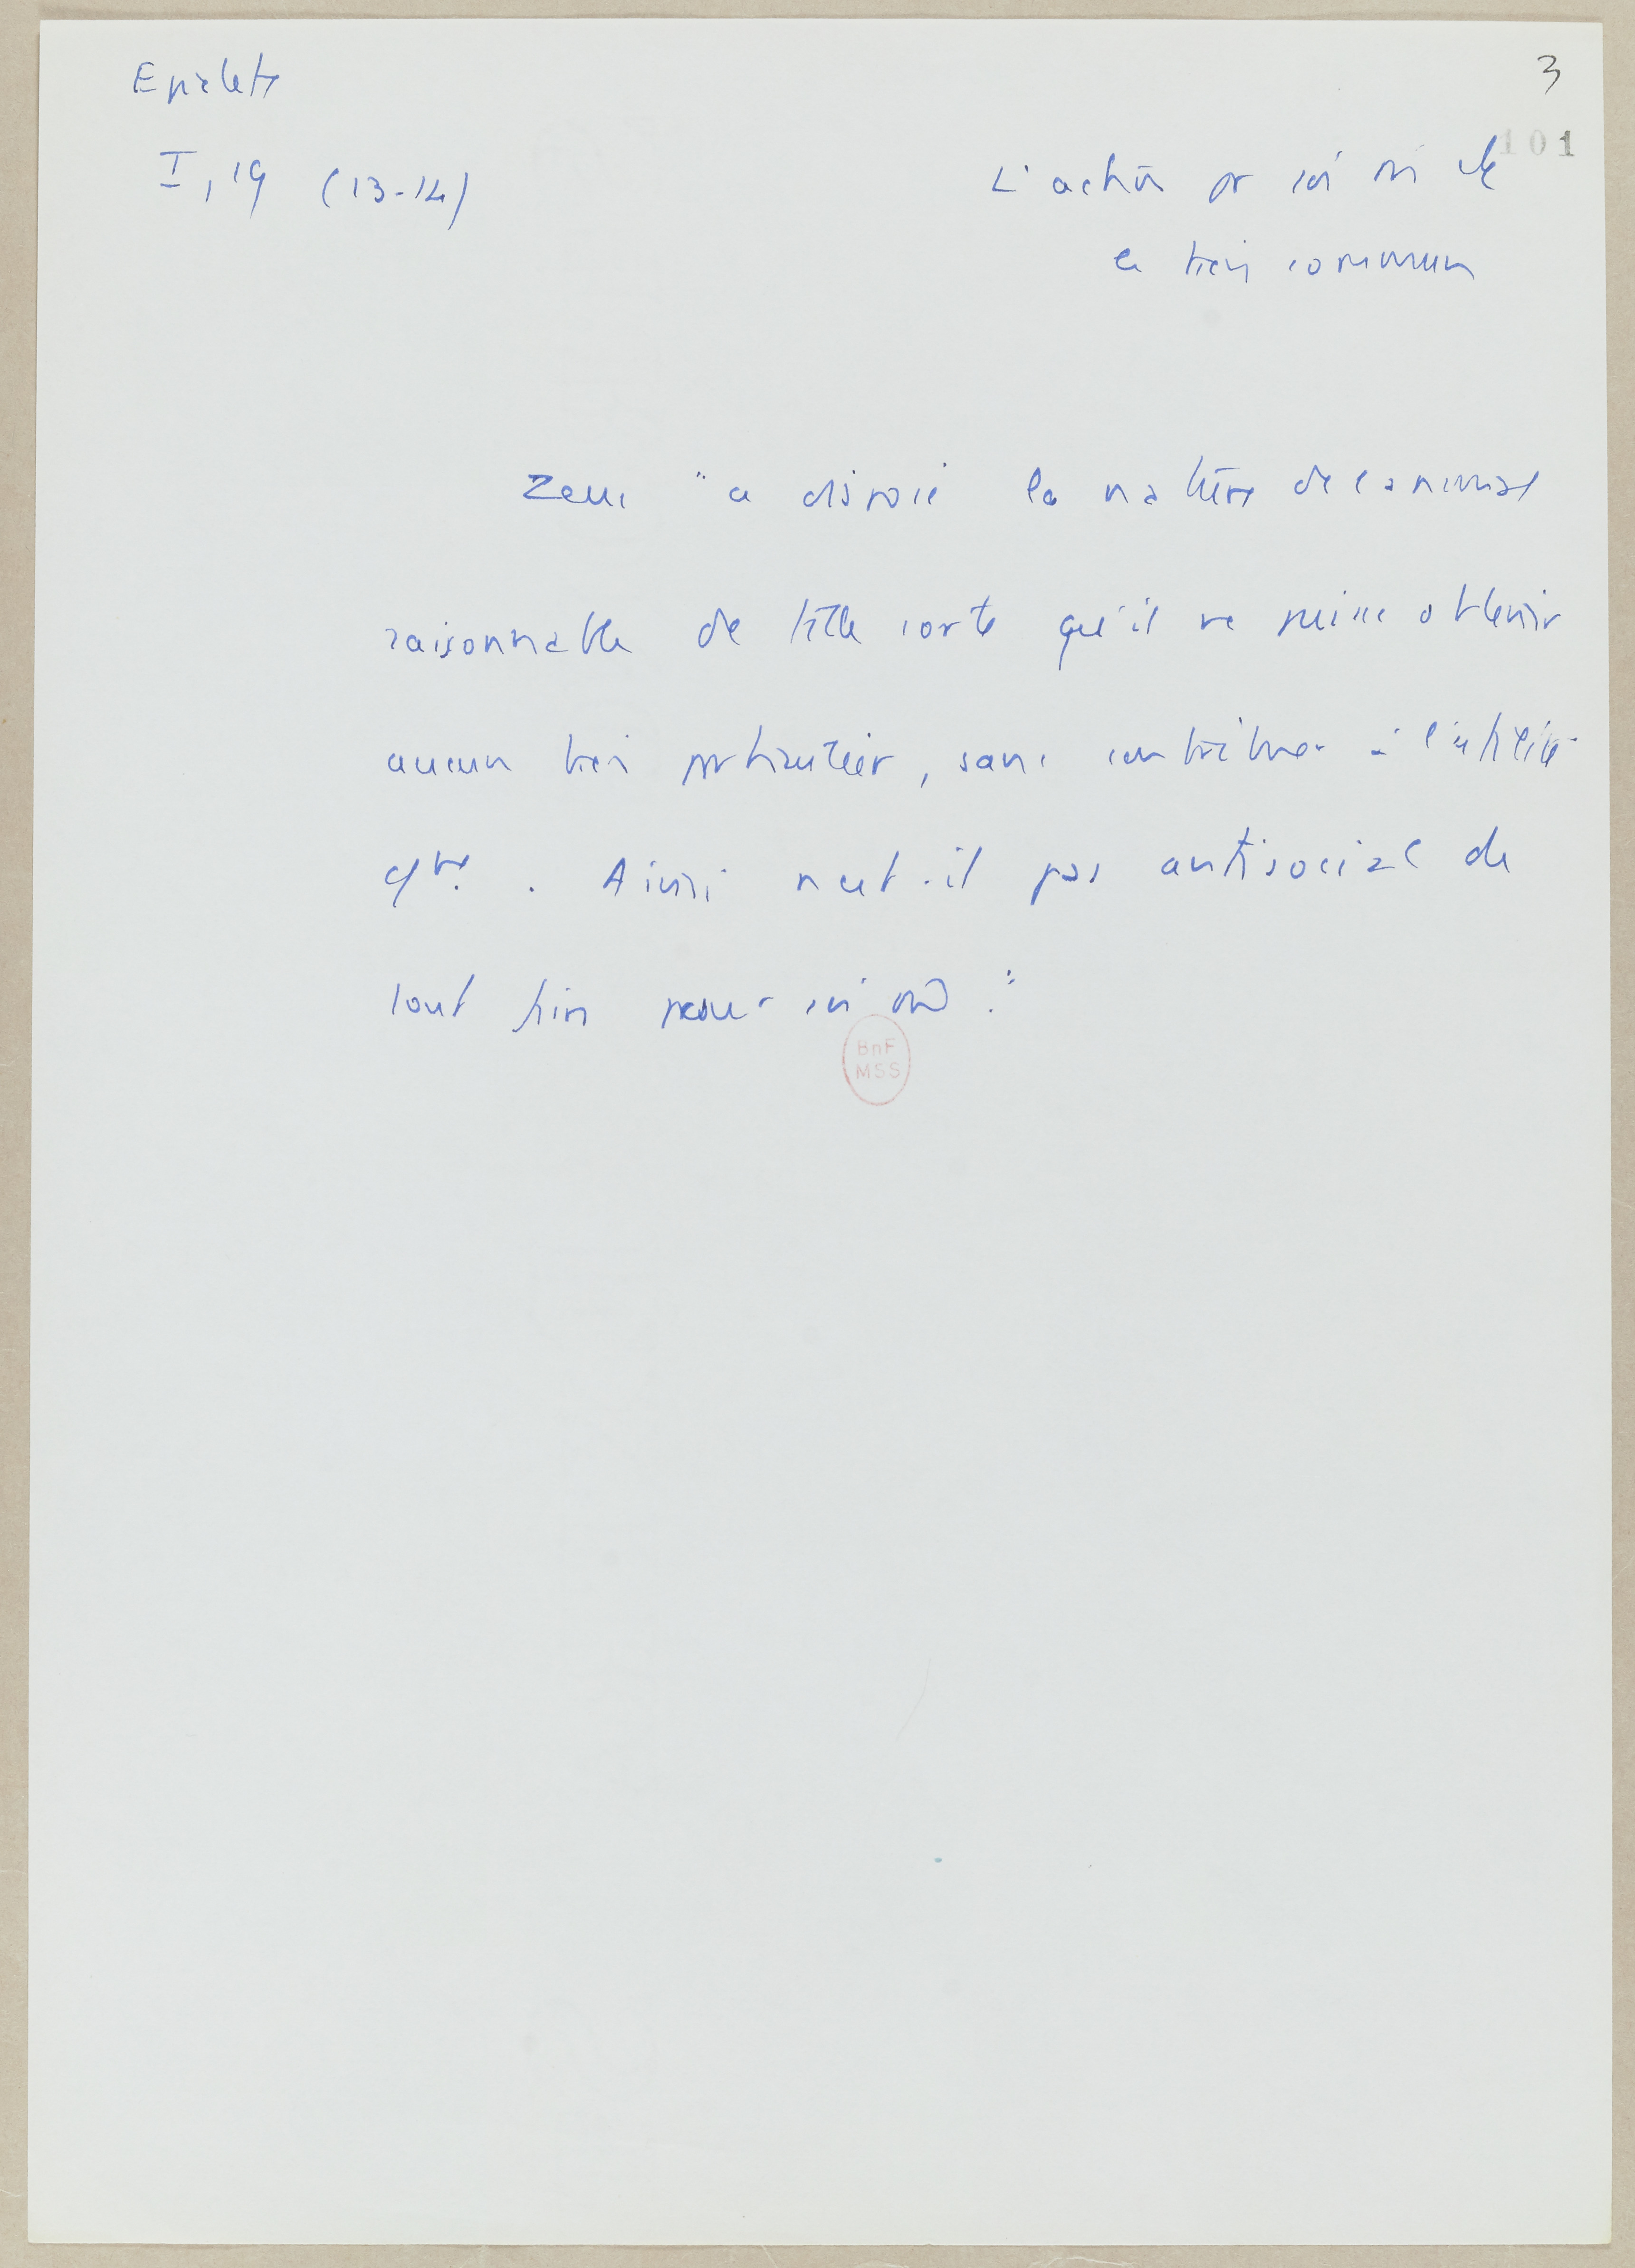 Epictète
3
101
I, 19 (13-14)
L'action pr soi et
le bien commun
Zeus "a disposé la nature de l'animal
raisonnable de telle sorte qu'il ne puisse obtenir
aucun bien particulier, sans contribuer à l'utilité
Ainsi n'est-il pas antisocial de
tout faire pour soi m̂."
BnF
MSS